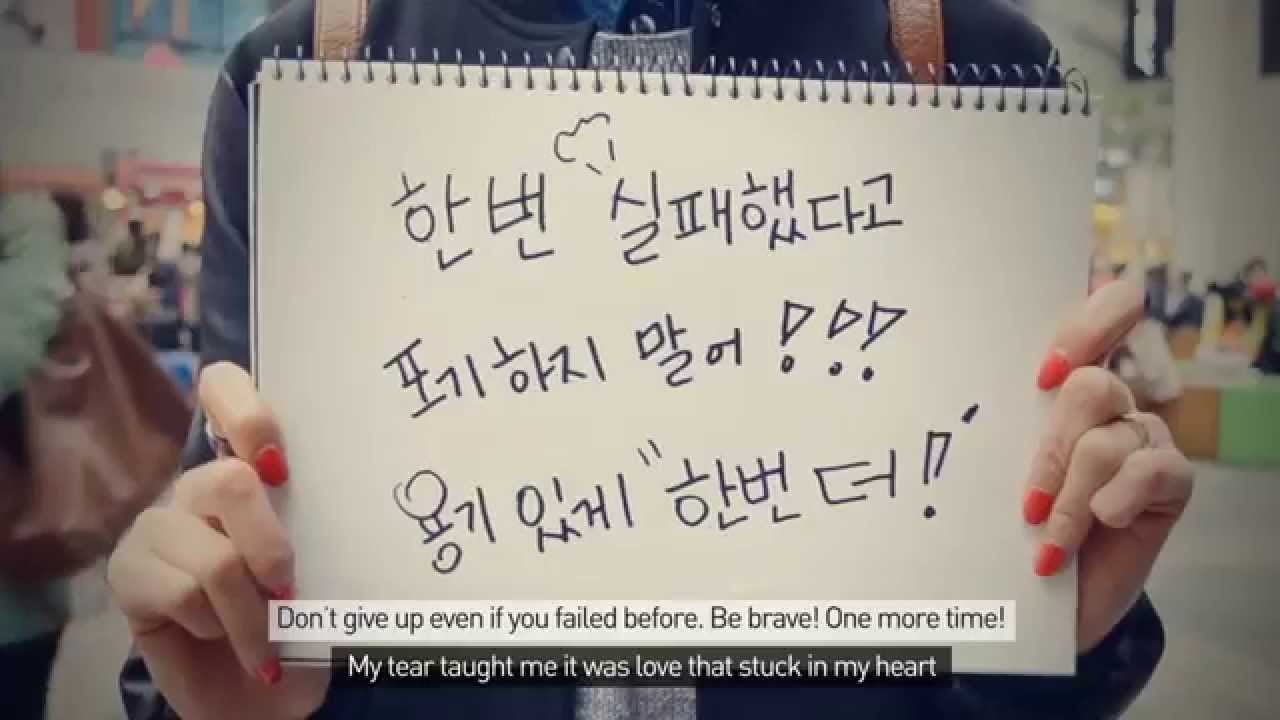 한번 실패했다고
포기하지 말어!!!
용기 있게 "한번 더!"
Don't give up even if you failed before. Be brave! One more time!
My tear taught me it was love that stuck in my heart